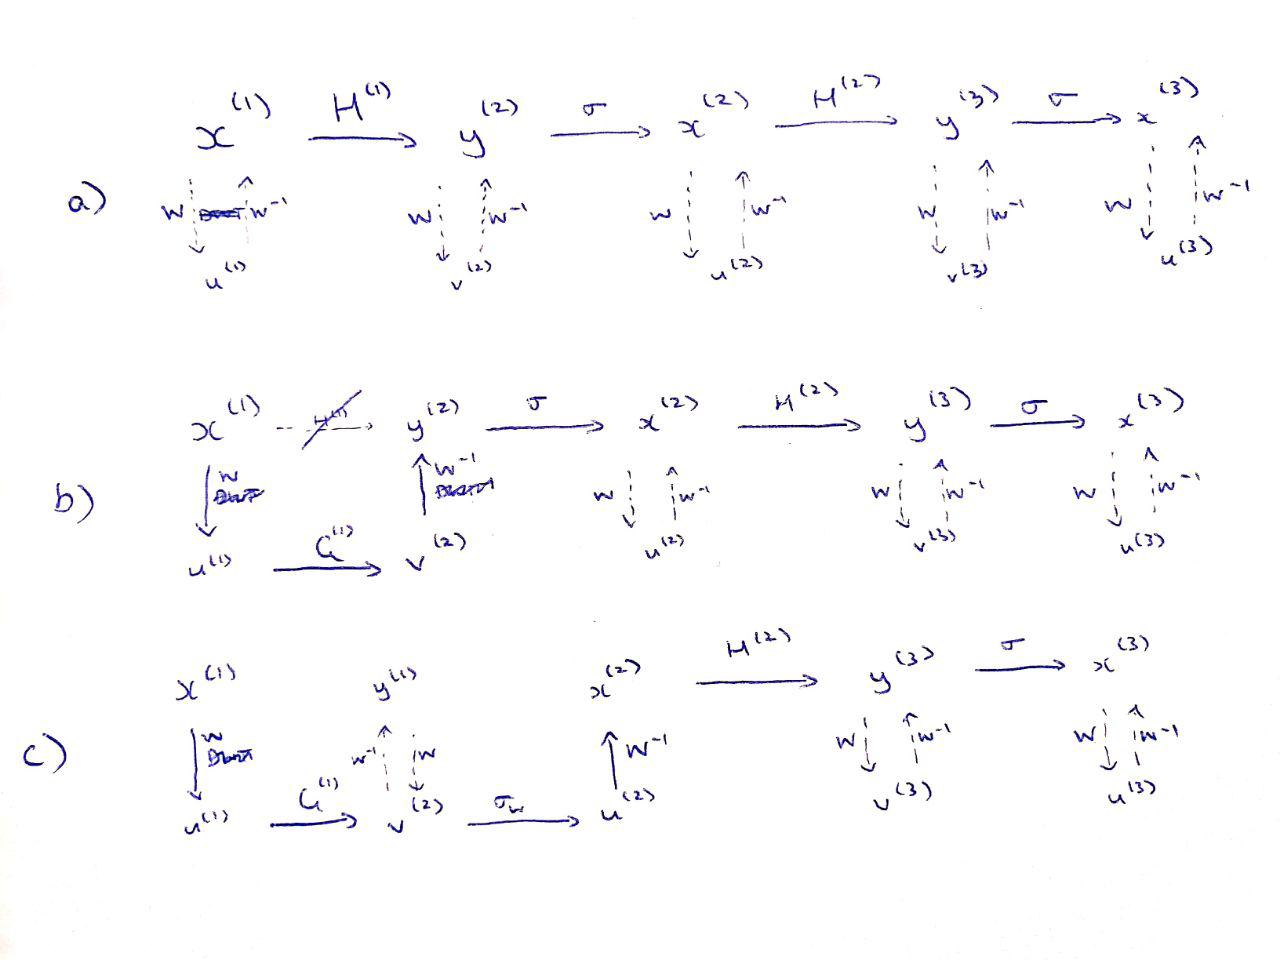 x^(1) H^(1) y^(2) σ x^(2) H^(2) y^(3) σ x^(3)
a) W W^-1 W W^-1 W W^-1 W W^-1 W W^-1
u^(1) v^(2) u^(2) v^(3) u^(3)
x^(1) H^(1) y^(2) σ x^(2) H^(2) y^(3) σ x^(3)
b) W W^-1 W W^-1 W W^-1 W W^-1
DWT
u^(1) G^(1) v^(2) u^(2) v^(3) u^(3)
x^(1) y^(1) x^(2) H^(2) y^(3) σ x^(3)
c) W W^-1 W W^-1 W W^-1 W W^-1
u^(1) G^(1) v^(2) σ_w u^(2) v^(3) u^(3)